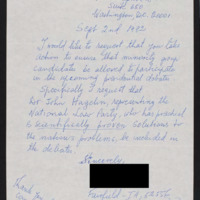 Suite 250
Washington D.C. 20001
Sept 2nd 1992
I would like to request that you take
action to ensure that minority party
candidates be allowed to participate
in the upcoming presidential debates
Specifically I request that
Dr John Hagelin, representing the
National Law Party, who has practical
& scientifically proven solutions to
the nation's problems be included in
the debates
Sincerely,
Thank you
Fairfield - IA,